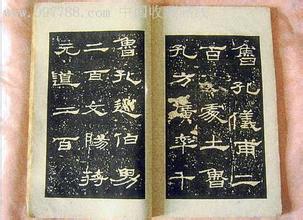 www.997788.com 中国收藏热线
魯孔儀甫二
百處土魯
孔方廣率千
魯孔巡伯男
二百文陽蔣
元道二百